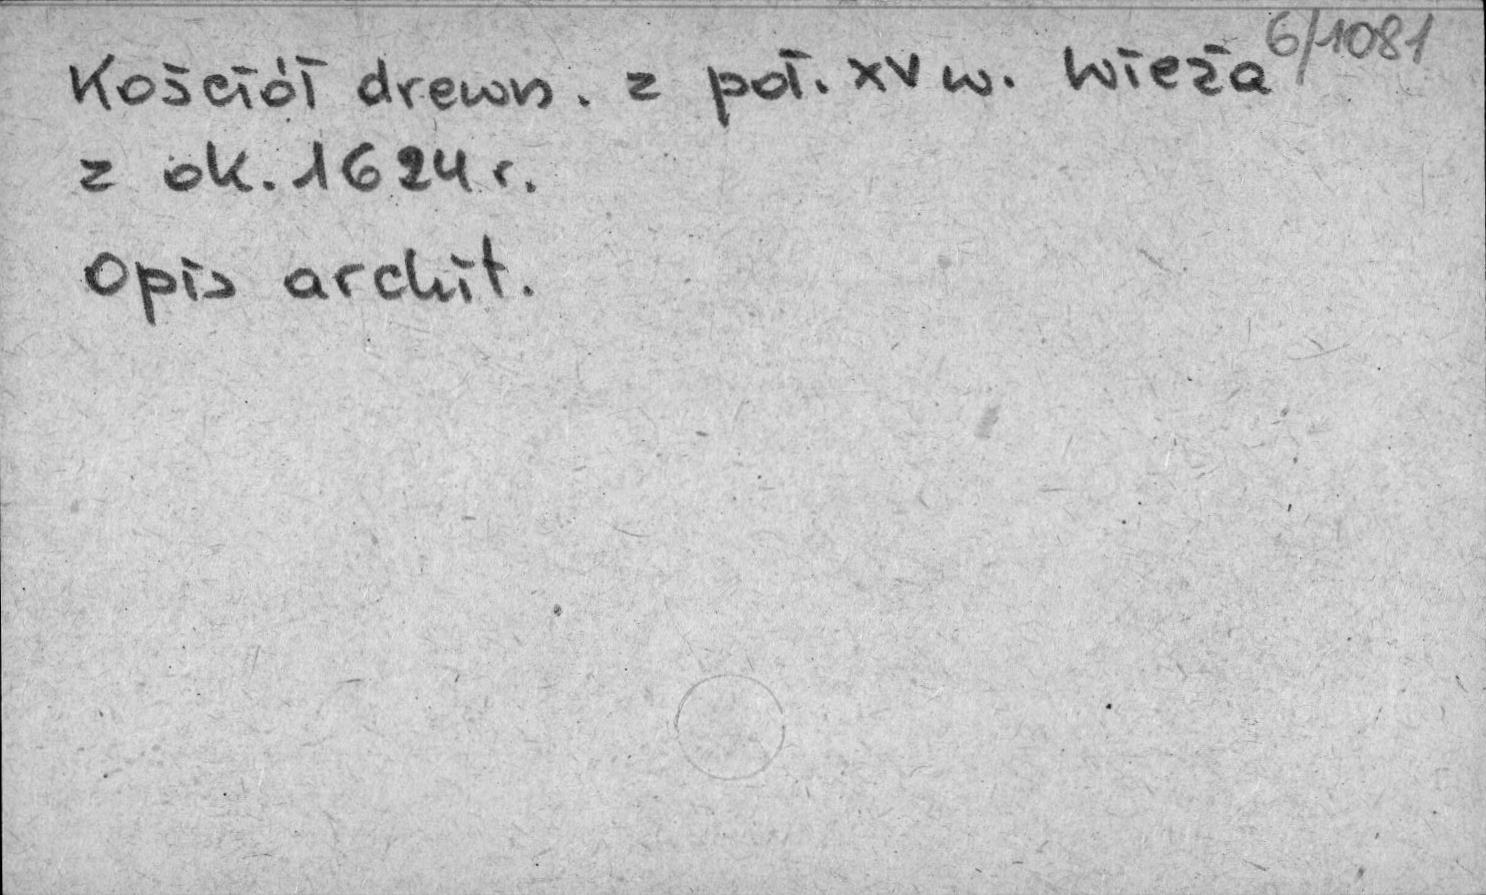 6/1081
Kościół drewn. z poł. XV w. Wieża
z ok. 1624 r.
Opis archit.